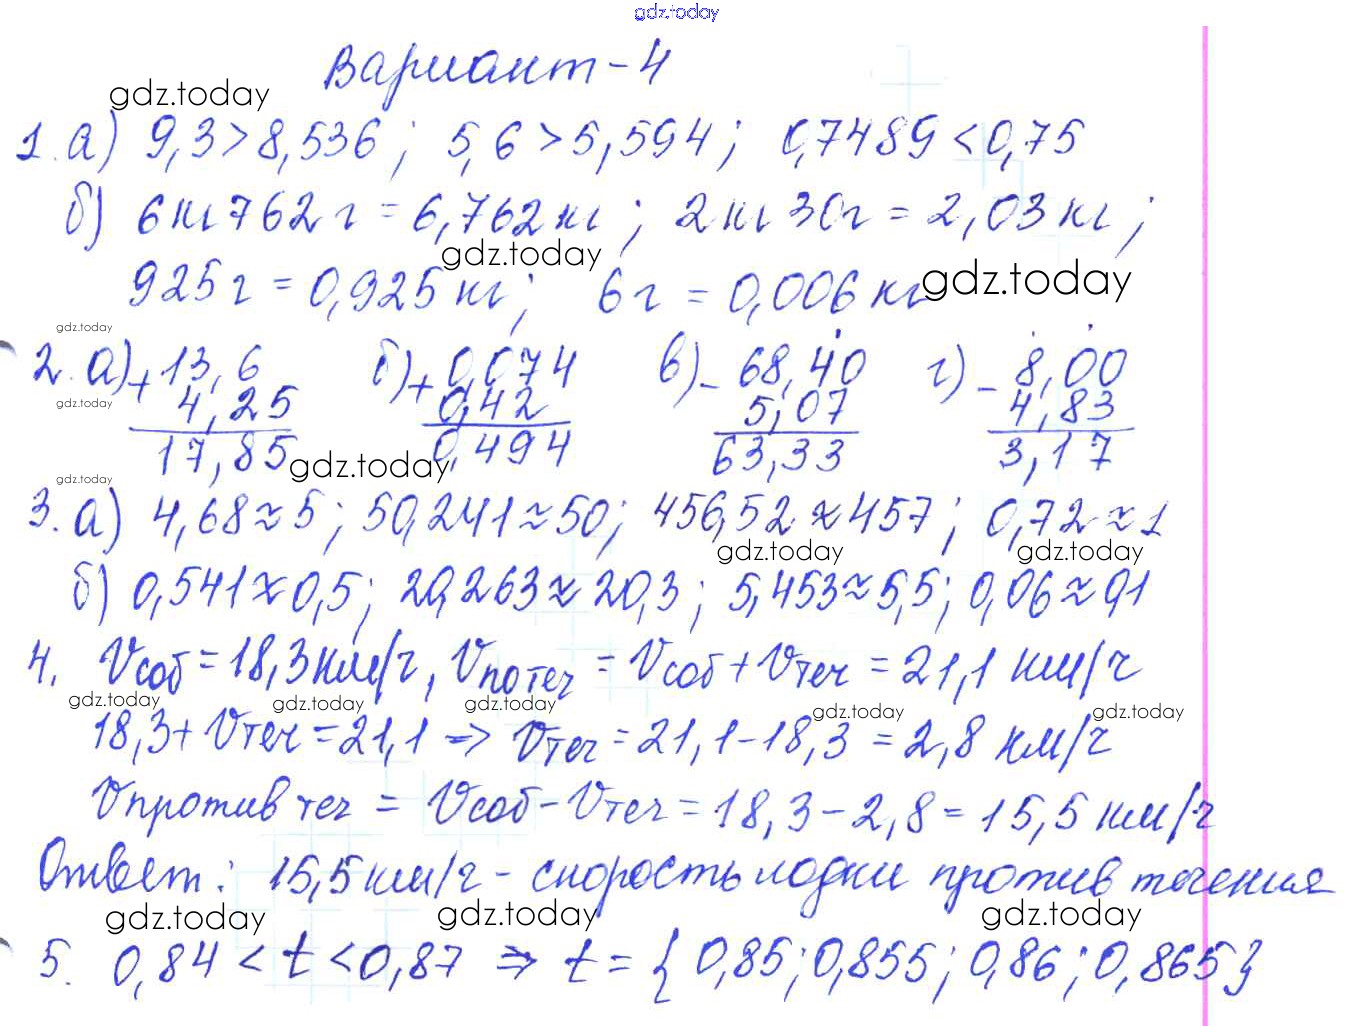 gdz.today
Вариант-4
gdz.today
1. а) 9,3>8,536; 5,6>5,594; 0,7489<0,75
б) 6кг762г=6,762кг; 2кг30г=2,03кг;
gdz.today gdz.today
925г=0,925кг; 6г=0,006кг
gdz.today
2. а) + 13,6 б) + 0,074 в) - 68,40 г) - 8,00
gdz.today 4,25 0,42 5,07 4,83
17,85 0,494 63,33 3,17
gdz.today gdz.today
3. а) 4,68≈5; 50,241≈50; 456,52≈457; 0,72≈1
gdz.today gdz.today
б) 0,541≈0,5; 20,263≈20,3; 5,453≈5,5; 0,06≈0,1
4. Vсоб=18,3км/г, Vпо теч=Vсоб+Vтеч=21,1 км/ч
gdz.today gdz.today gdz.today gdz.today gdz.today
18,3+Vтеч=21,1 => Vтеч=21,1-18,3=2,8 км/ч
Vпротив теч = Vсоб-Vтеч=18,3-2,8=15,5 км/ч
Ответ: 15,5км/г - скорость лодки против течения
gdz.today gdz.today gdz.today
5. 0,84<t<0,87 => t={0,85;0,855;0,86;0,865}